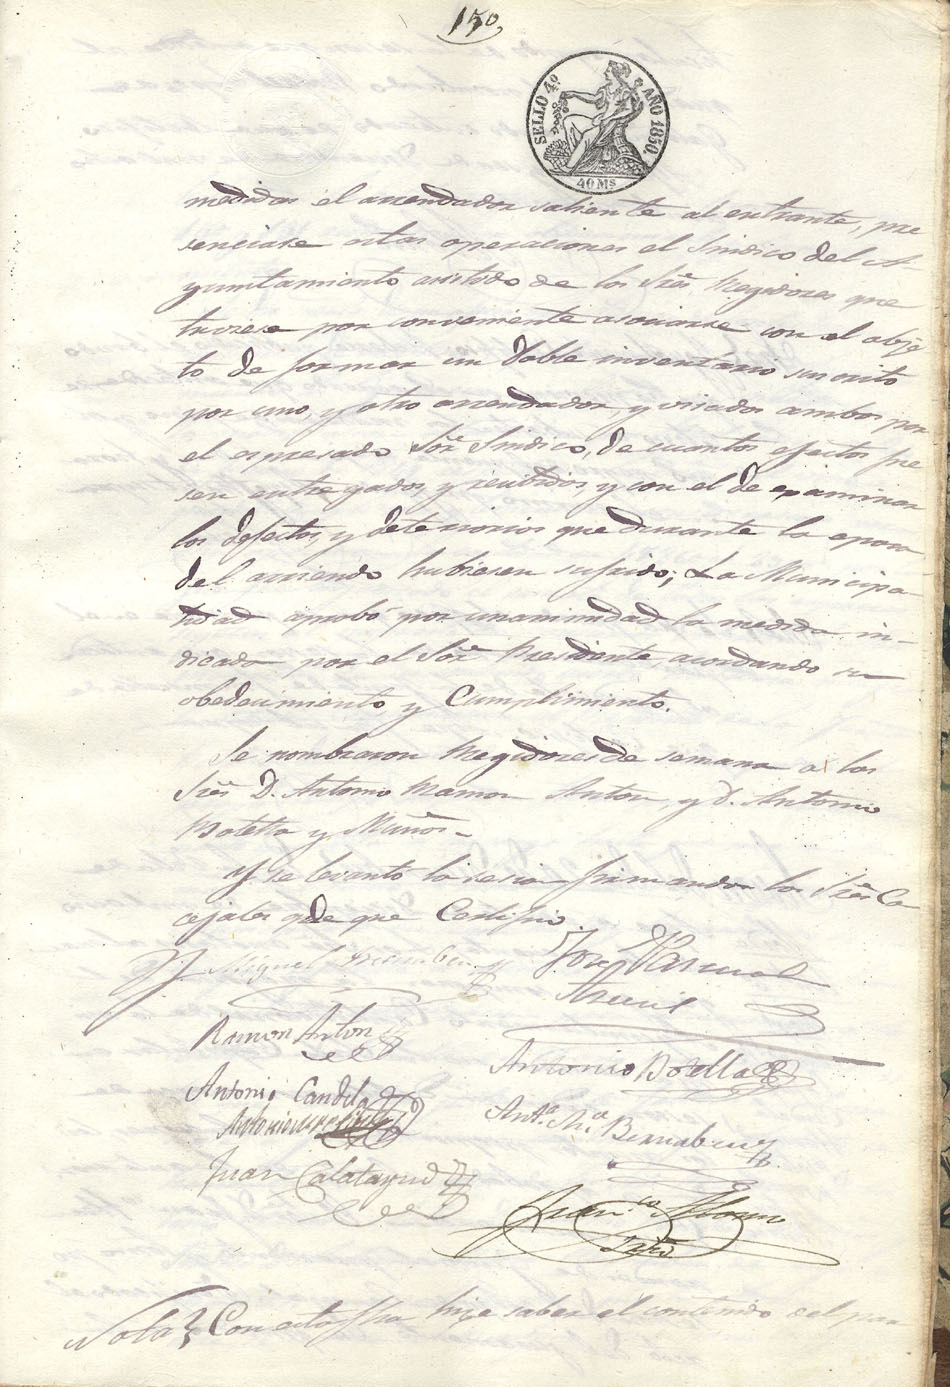 150,
SELLO 4º AÑO 1850.
40 Ms
medidas el arrendador saliente al entrante, pre
senciase estas operaciones el Sindico del A-
yuntamiento asistido de los Sres Regidores que
tuviese por conveniente asociarse con el obje
to de formar un doble inventario suscrito
por uno, y otro arrendador, y visados ambos por
el espresado Sor Sindico, de cuantos efectos fue
sen entregados, y recibidos, y con el de examinar
los defectos, y deteriorios que durante la epoca
del arriendo hubiesen sufrido; La Municipa-
lidad aprobó por unanimidad la medida in-
dicada por el Sor Presidente, acordando su
obedecimiento, y Cumplimiento.
Se nombraron Regidores de semana a los
Sres D. Antonio Ramon Anton, y D. Antonio
Botella y Muñoz.
Y se levantó la sesion firmando los Sres Con
cejales de que Certifico.
Miguel
José Pascual
Ramon Anton
Antonio Botella
Antonio Candela
Antonio
Anto Ma Bernabeu
Juan Calatayud
Franco Alonso
Srio
Nota Con esta fha hize saber el contenido del par